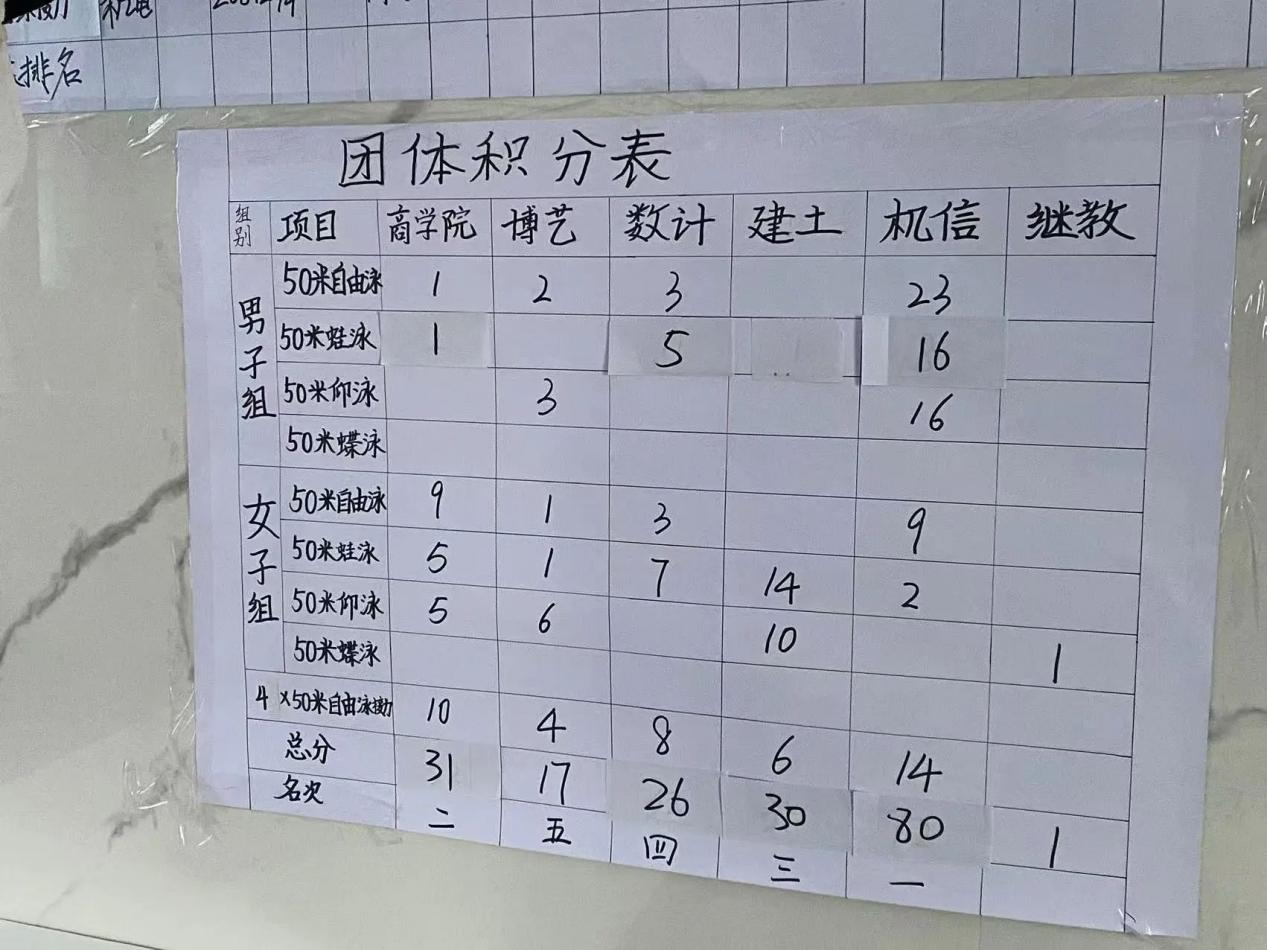 机电
排名
团体积分表
组别 项目 商学院 博艺 数计 建土 机信 继教
男子组
50米自由泳 1 2 3 23
50米蛙泳 1 5 16
50米仰泳 3 16
50米蝶泳
女子组
50米自由泳 9 1 3 9
50米蛙泳 5 1 7 14 2
50米仰泳 5 6 10 1
50米蝶泳
4×50米自由泳接力 10 4 8 6 14
总分 31 17 26 30 80 1
名次 二 五 四 三 一